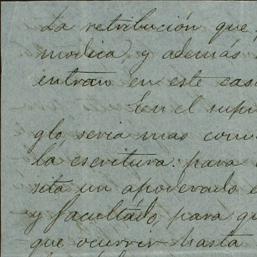 La retribución que
modica, y además
entran en este cas
en el supu
glo seria mas conv
la escritura: para
sita un apoderado e
y facultado, para qu
que ocurrir hasta